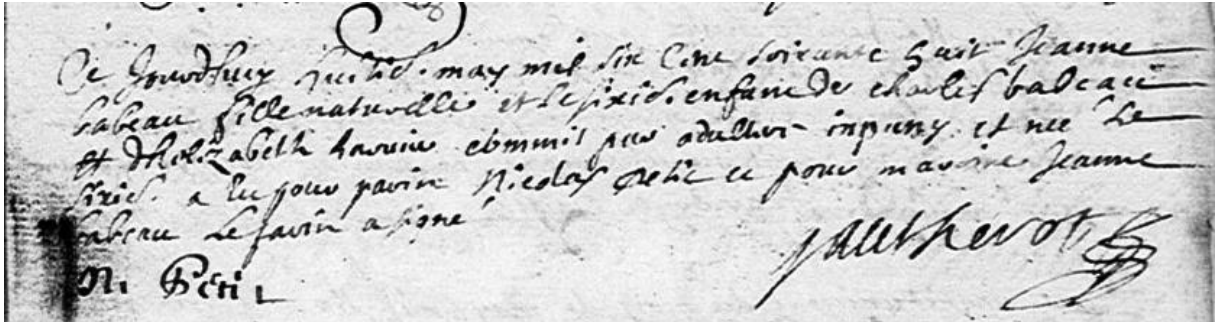 Ce Jourdhuy huitie. may mil six cens soixante huit Jeanne
babeau fille naturelle et le sixie. enfans de charles babeau
et dhelizabeth commis par adultere inpuny. et nee le
sixie. a eu pour parin Nicolas petit et pour maraine Jeanne
babeau Le parin a signé
N. Petit